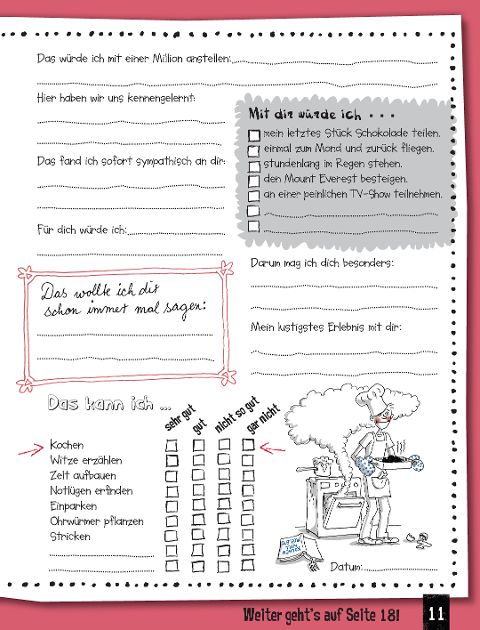 Das würde ich mit einer Million anstellen:
Hier haben wir uns kennengelernt:
Das fand ich sofort sympathisch an dir:
Für dich würde ich:
Mit dir würde ich . . .
mein letztes Stück Schokolade teilen.
einmal zum Mond und zurück fliegen.
stundenlang im Regen stehen.
den Mount Everest besteigen.
an einer peinlichen TV-Show teilnehmen.
Das wollte ich dir
schon immer mal sagen:
Darum mag ich dich besonders:
Mein lustigstes Erlebnis mit dir:
Das kann ich ...
sehr gut
gut
nicht so gut
gar nicht
Kochen
Witze erzählen
Zelt aufbauen
Notlügen erfinden
Einparken
Ohrwürmer pflanzen
Stricken
Datum:
Weiter geht's auf Seite 18!
11